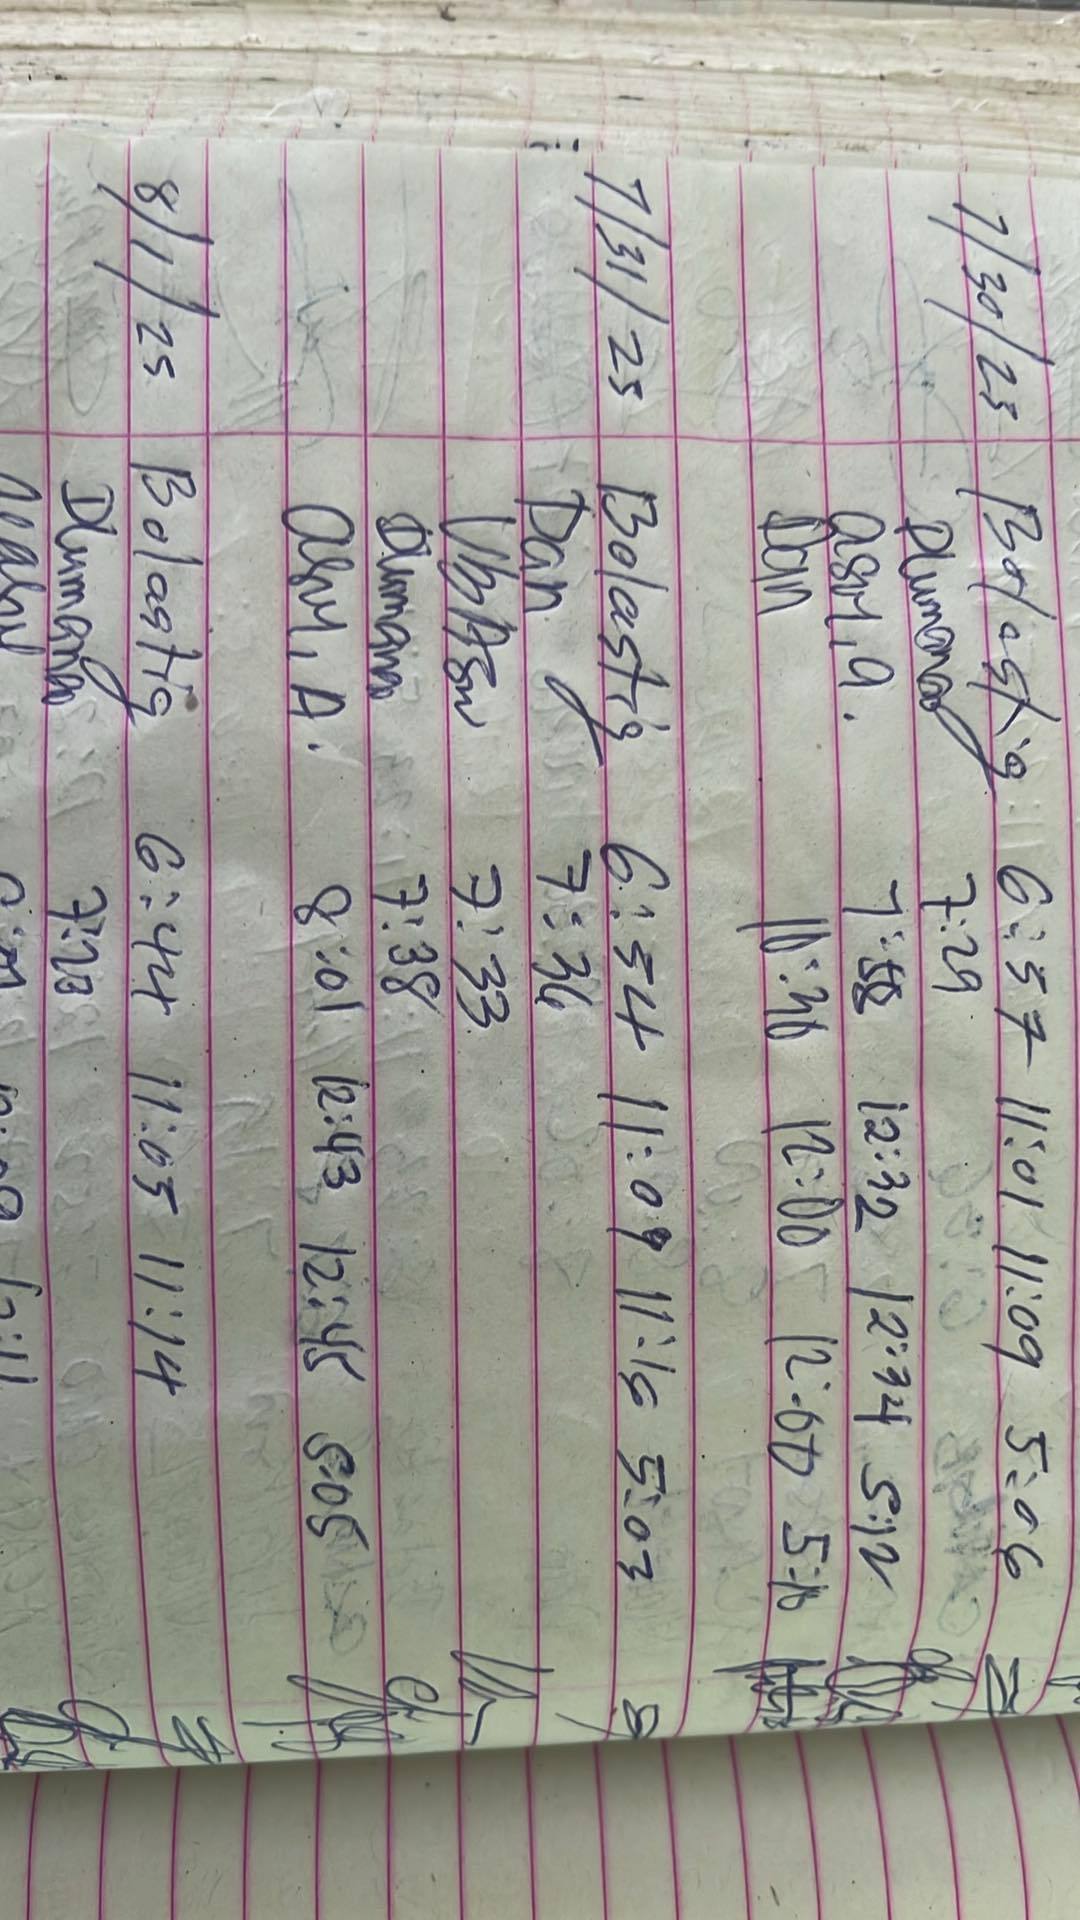 7/30/25 Bolastig 6:57 11:01 11:09 5:06
Dumanao 7:29
asm, a. 7:58 12:32 12:34 5:12
Dan 10:30 12:00 12:00 5:10
7/31/25 Bolastig 6:54 11:09 11:15 5:03
Dan 7:36
7:33
Dumanao 7:38
asm, A. 8:01 12:43 12:45 5:05
8/1/25 Bolastig 6:44 11:05 11:14
Dumanao 7:20
12:11